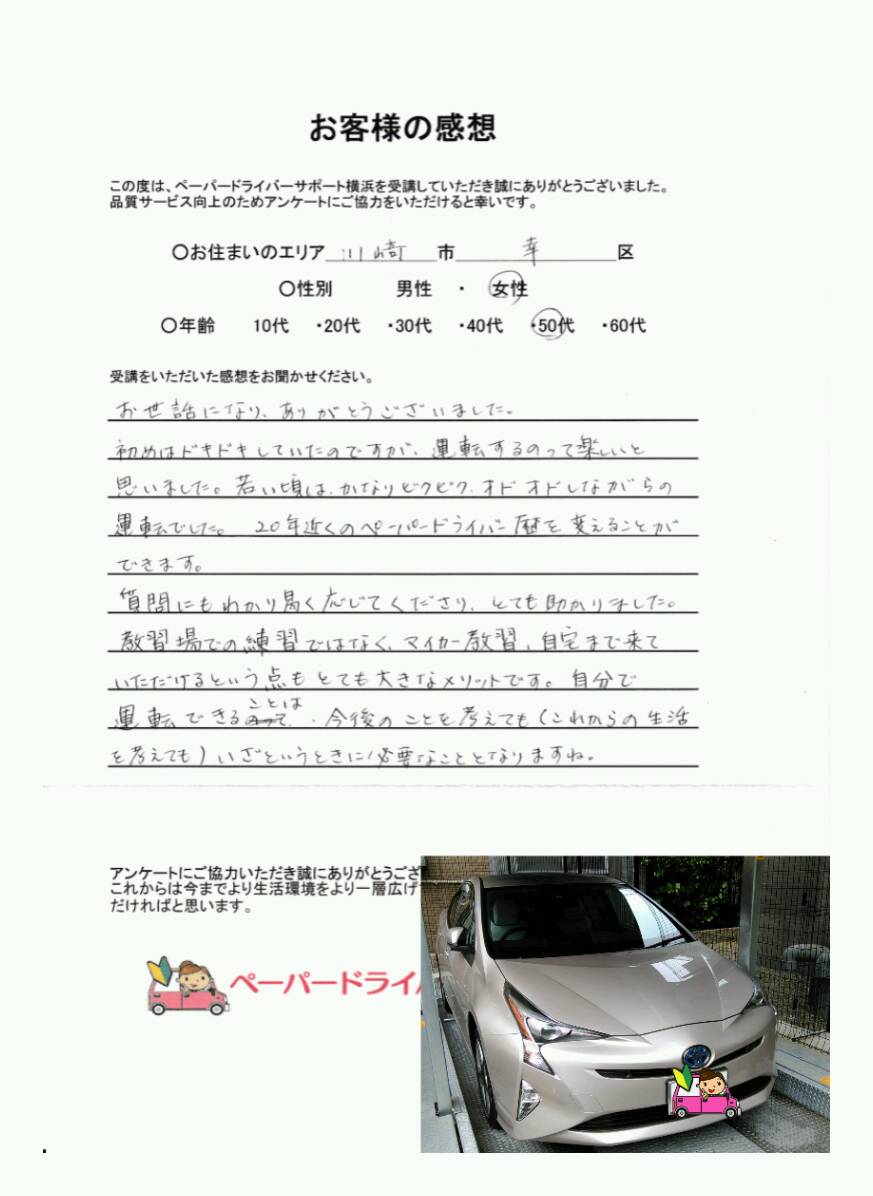 お客様の感想
この度は、ペーパードライバーサポート横浜を受講していただき誠にありがとうございました。
品質サービス向上のためアンケートにご協力をいただけると幸いです。
〇お住まいのエリア 川崎 市 幸 区
〇性別 男性 ・ 女性
〇年齢 10代 ・20代 ・30代 ・40代 ・50代 ・60代
受講をいただいた感想をお聞かせください。
お世話になり、ありがとうございました。
初めはドキドキしていたのですが、運転するのって楽しいと
思いました。若い頃は、かなりビクビク、オドオドしながらの
運転でした。 20年近くのペーパードライバー歴を変えることが
できます。
質問にもわかり易く応じてくださり、とても助かりました。
教習場での練習ではなく、マイカー教習、自宅まで来て
いただけるという点もとても大きなメリットです。自分で
運転できることは、今後のことを考えても(これからの生活
を考えても)いざというときに必要なこととなりますね。
アンケートにご協力いただき誠にありがとうござ
これからは今までより生活環境をより一層広げ
だければと思います。
ペーパードライ